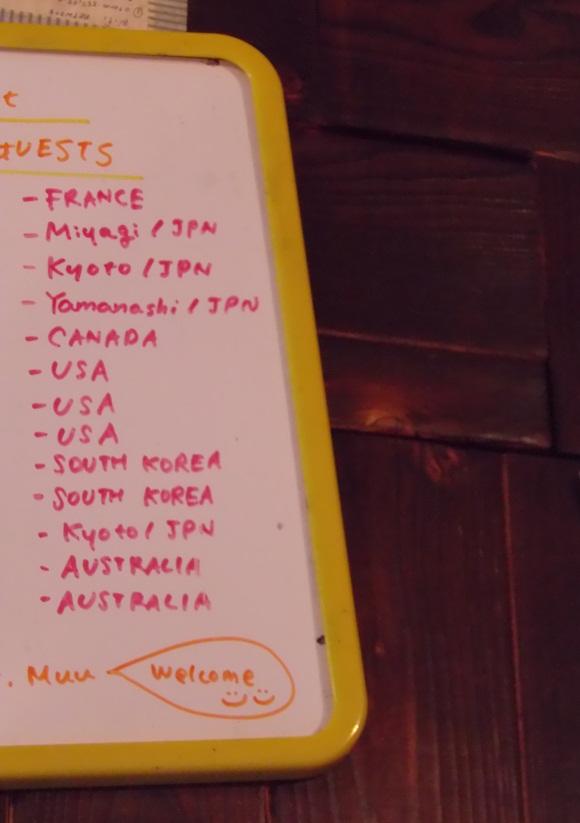 t
GUESTS
- FRANCE
- Miyagi / JPN
- Kyoto / JPN
- Yamanashi / JPN
- CANADA
- USA
- USA
- USA
- SOUTH KOREA
- SOUTH KOREA
- Kyoto / JPN
- AUSTRALIA
- AUSTRALIA
. Muu Welcome